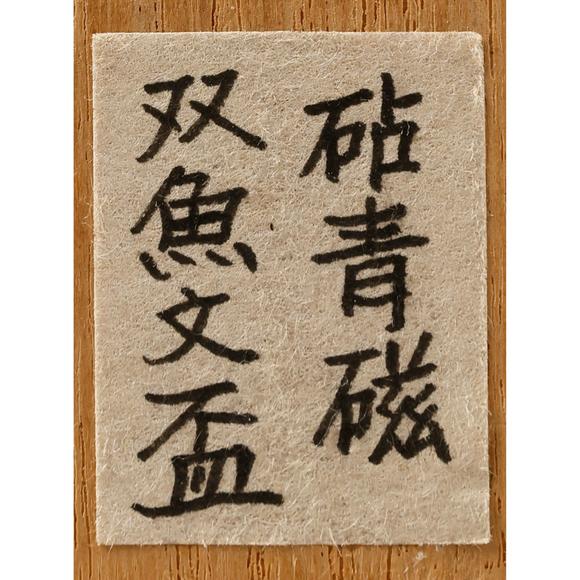 砧青磁
双魚文盃